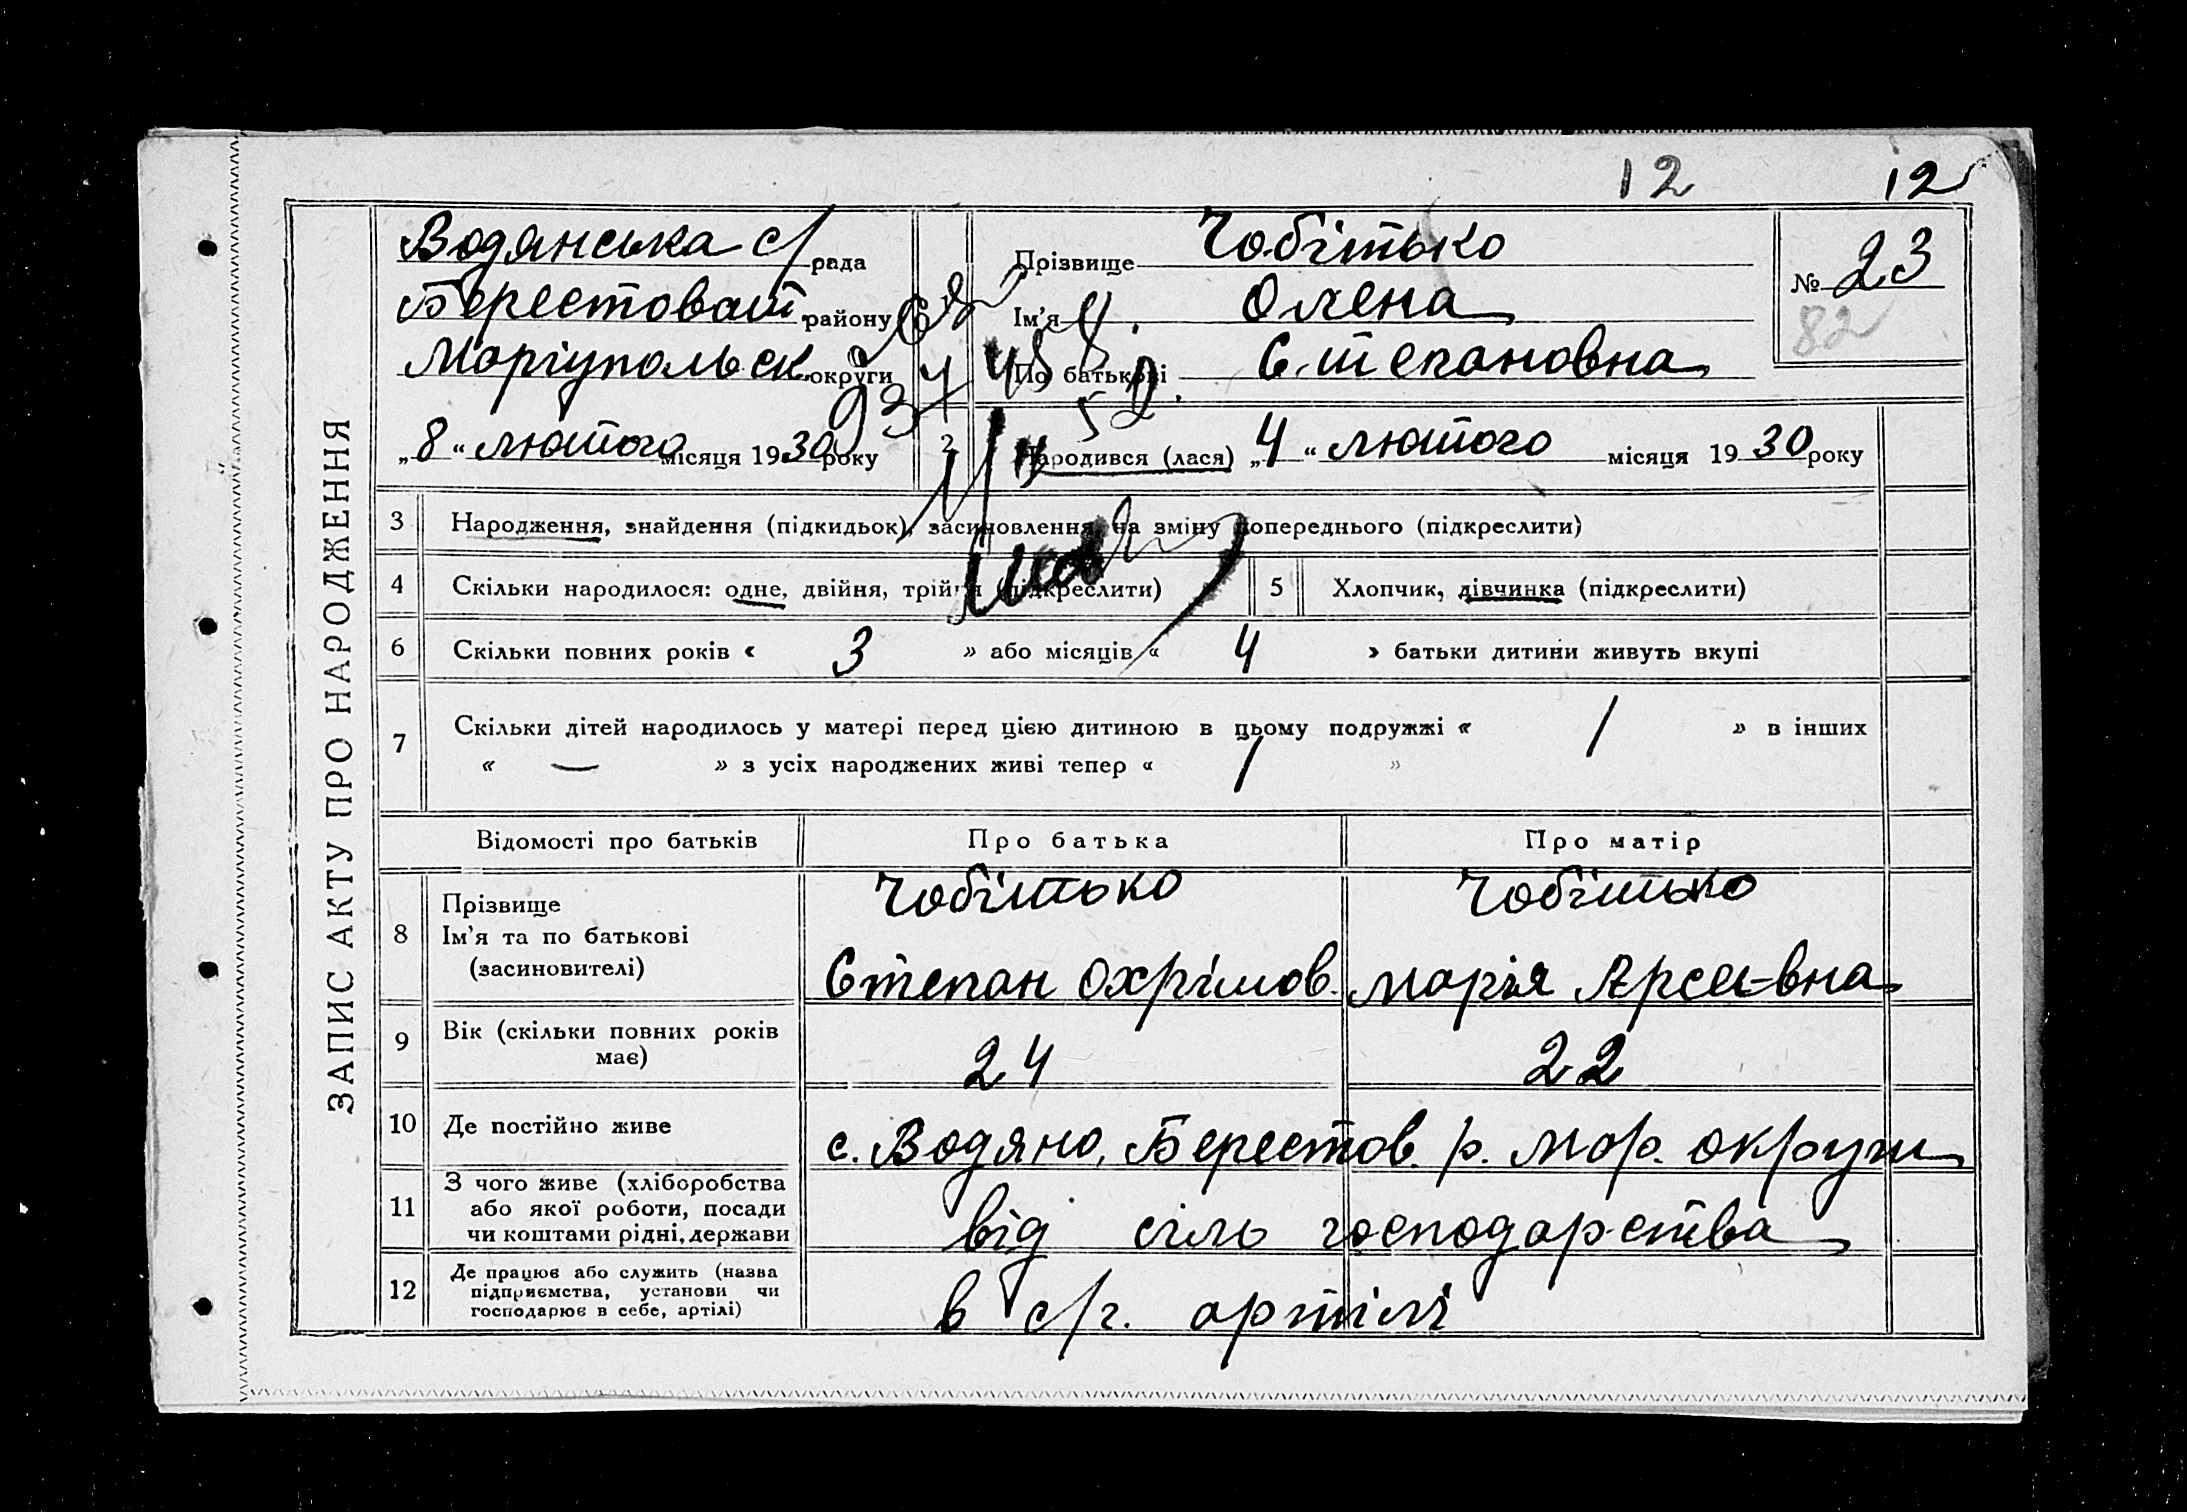 12 12
ЗАПИС АКТУ ПРО НАРОДЖЕННЯ
Водянська с/рада
Берестоват. району
Маріупольск. округи
„8“ лютого місяця 1930 року
Прізвище Чобітько
Ім’я Олена
По батькові Степановна
№ 23
82
2 Народився (лася) „4“ лютого місяця 1930 року
3 Народження, знайдення (підкидьок), засиновлення, на зміну попереднього (підкреслити)
4 Скільки народилося: одне, двійня, трійня (підкреслити) 5 Хлопчик, дівчинка (підкреслити)
6 Скільки повних років « 3 » або місяців « 4 » батьки дитини живуть вкупі
7 Скільки дітей народилось у матері перед цією дитиною в цьому подружжі « 1 » в інших
« — » з усіх народжених живі тепер « 1 »
Відомості про батьків Про батька Про матір
8 Прізвище
Ім’я та по батькові
(засиновителі)
Чобітько Чобітько
Степан Охрімов. Марія Арсен-вна
9 Вік (скільки повних років
має)
24 22
10 Де постійно живе
с. Водяно, Берестов. р. Мар. округи
11 З чого живе (хліборобства
або якої роботи, посади
чи коштами рідні, держави
від сіль господарства
12 Де працює або служить (назва
підприємства, установи чи
господарює в себе, артілі)
в с/г. артілі